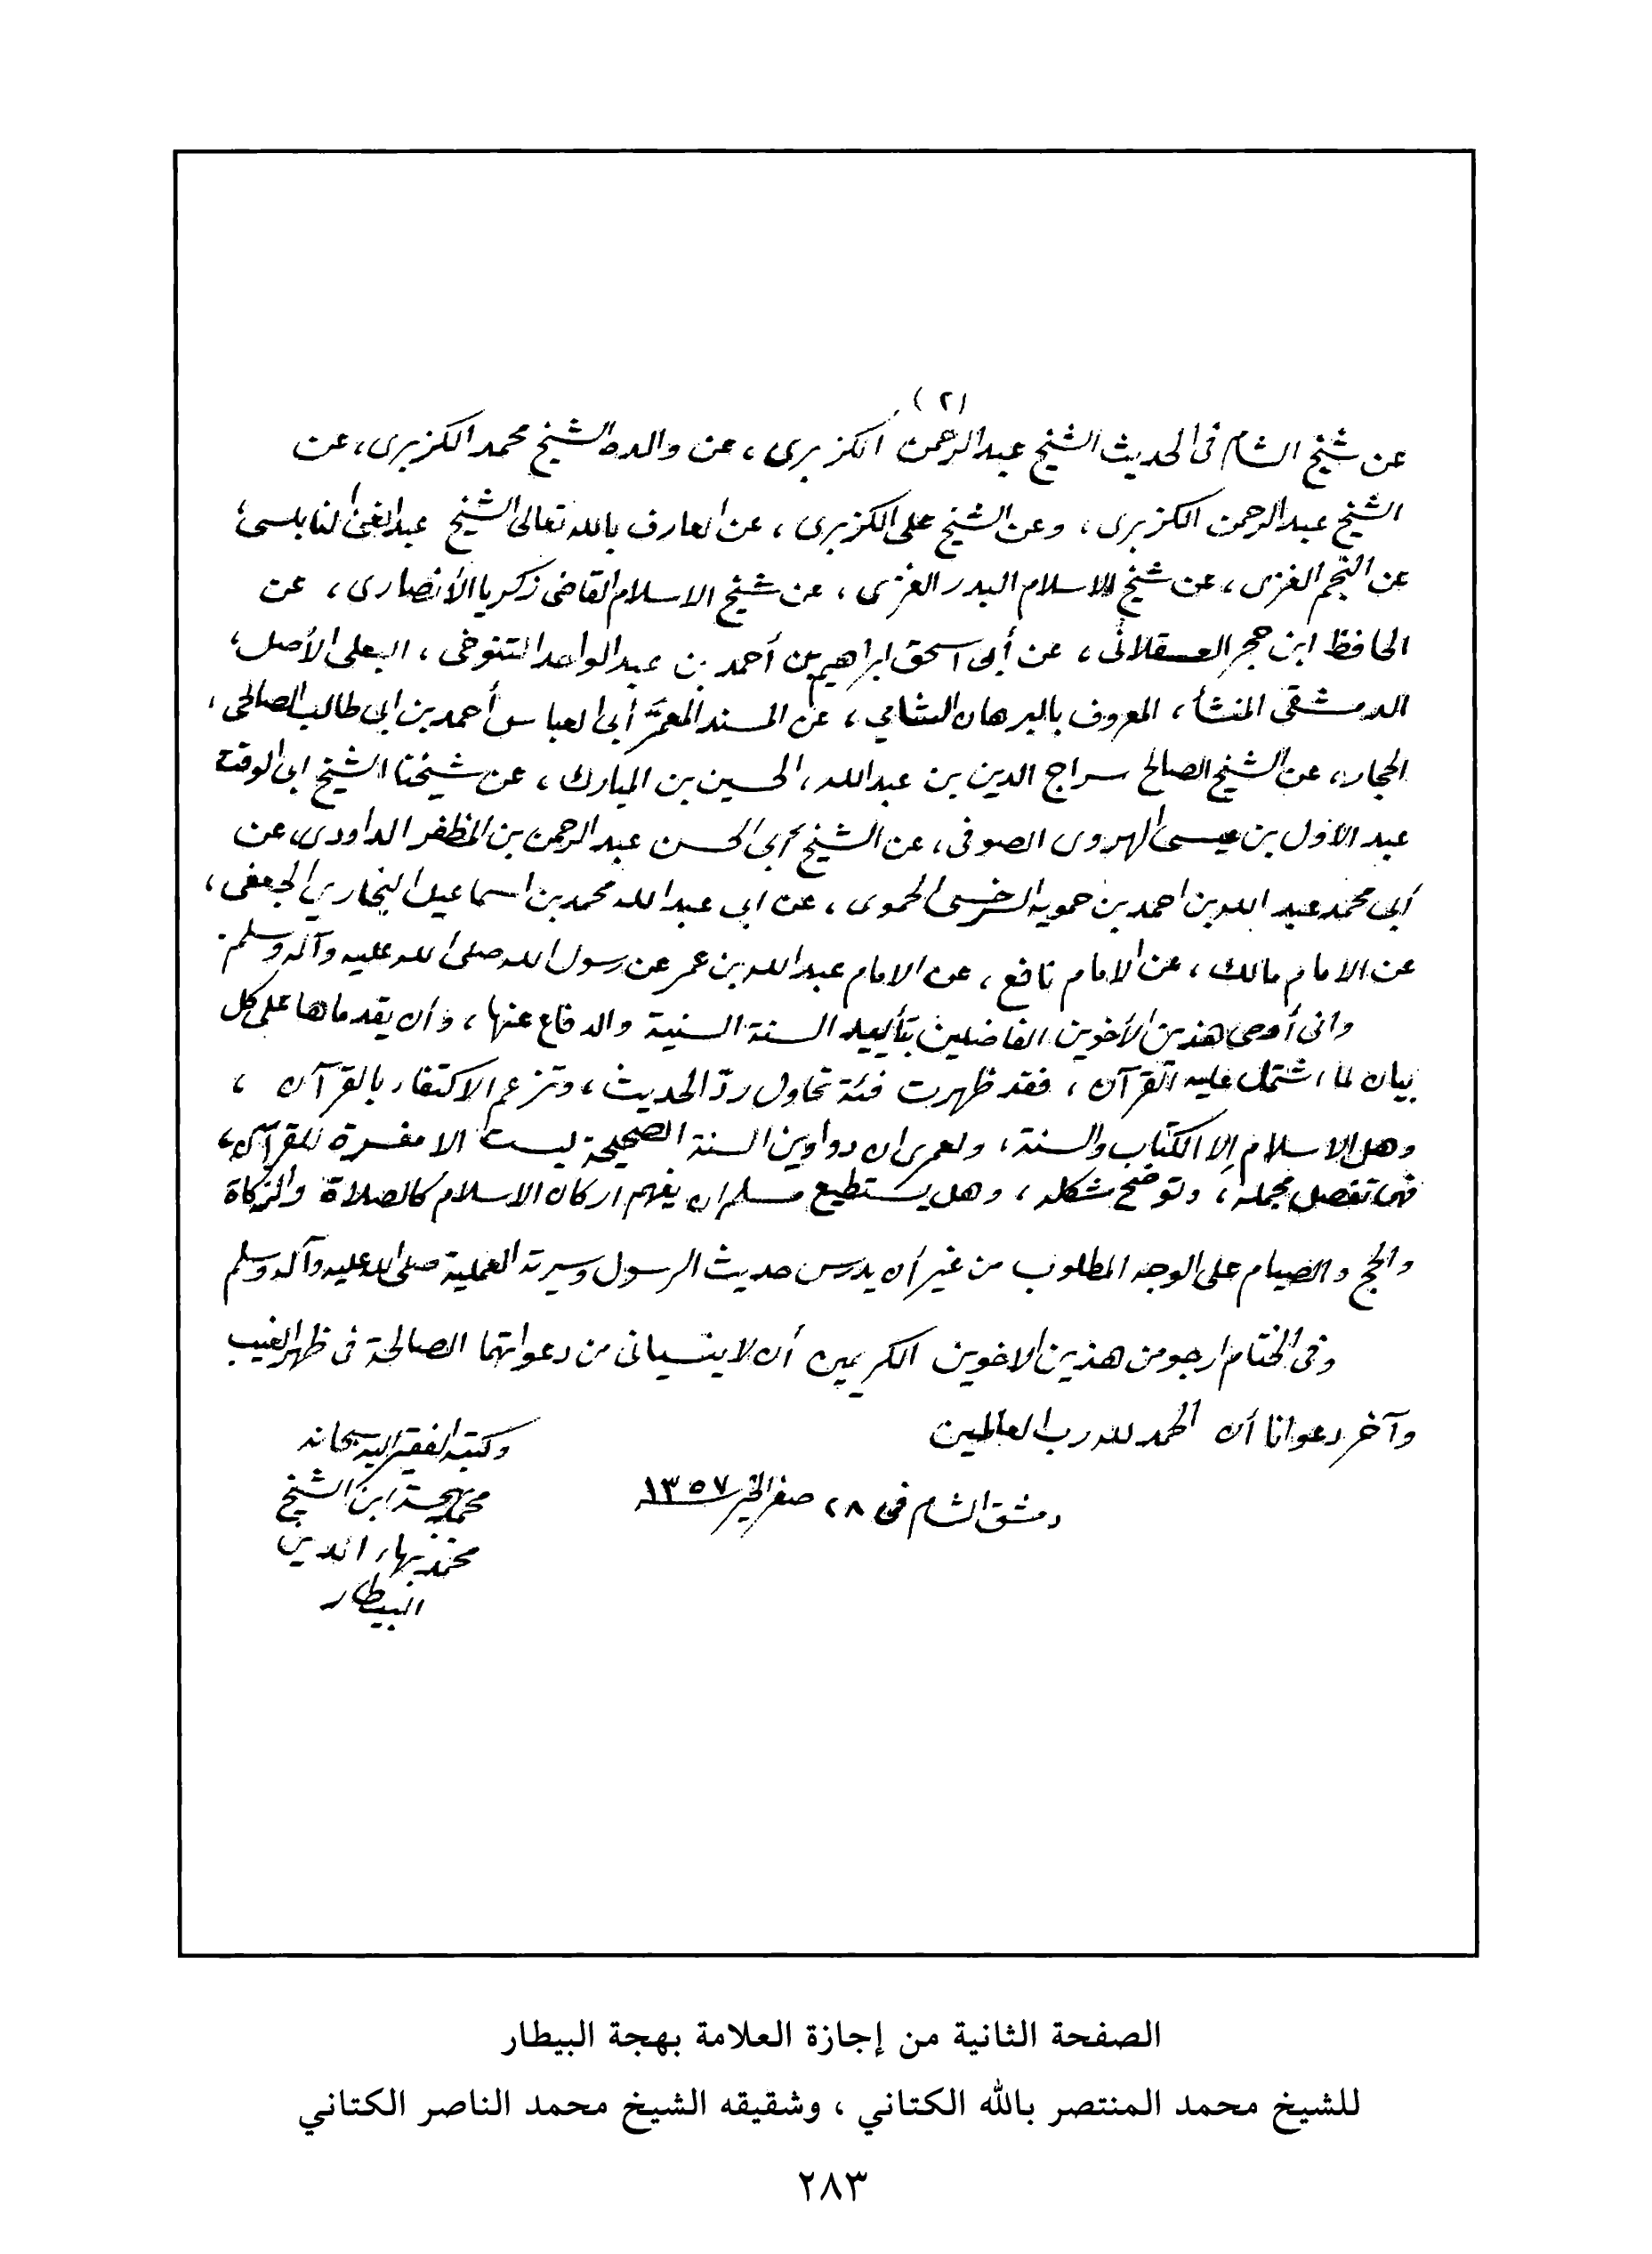 (٢)
عن شيخ الشام فى الحديث الشيخ عبدالرحمن الكزبرى ، عن والده الشيخ محمد الكزبرى ، عن
الشيخ عبدالرحمن الكزبرى ، وعن الشيخ على الكزبرى ، عن العارف بالله تعالى الشيخ عبدالغنى النابلسى ،
عن النجم الغزى ، عن شيخ الاسلام البدر الغزى ، عن شيخ الاسلام القاضى زكريا الأنصارى ، عن
الحافظ ابن حجر العسقلانى ، عن أبى اسحق ابراهيم بن أحمد بن عبدالواحد التنوخى ، البعلى الأصل ،
الدمشقى المنشأ ، المعروف بالبرهان الشامي ، عن المسند المعمَّر أبى العباس أحمد بن ابي طالب الصالحى ،
الحجار ، عن الشيخ الصالح سراج الدين بن عبدالله ، الحسين بن المبارك ، عن شيخنا الشيخ ابى الوقت
عبد الأول بن عيسى الهروى الصوفى ، عن الشيخ ابى الحسن عبدالرحمن بن المظفر الداودى ، عن
أبي محمد عبد الله بن احمد بن حمويه السرخسى الحموى ، عن ابي عبدالله محمد بن اسماعيل البخاري الجعفى ،
عن الامام مالك ، عن الامام نافع ، عن الامام عبدالله بن عمر عن رسول الله صلى الله عليه وآله وسلم .
وانى أوصى هذين الأخوين الفاضلين بتأييد السنة السنية والدفاع عنها ، وأن يقدماها على كل
بيان لما اشتمل عليه القرآن ، فقد ظهرت فئة تحاول ردّ الحديث ، وتزعم الاكتفاء بالقرآن ،
وهل الاسلام إلا الكتاب والسنة ، ولعمرى ان دواوين السنة الصحيحة ليست الا مفسرة للقرآن ،
فهى تفصل مجمله ، وتوضح مشكله ، وهل يستطيع مسلم ان يفهم اركان الاسلام كالصلاة والزكاة
والحج والصيام على الوجه المطلوب من غير أن يدرس حديث الرسول وسيرته العملية صلى الله عليه وآله وسلم
وفى الختام ارجو من هذين الاخوين الكريمين أن لا ينسيانى من دعواتهما الصالحة فى ظهر الغيب
وآخر دعوانا أن الحمد لله رب العالمين
دمشق الشام فى ٢٨ صفر الخير ١٣٥٧
وكتبه الفقير اليه سبحانه
محمد بهجة ابن الشيخ
محمد بهاء الدين
البيطار
الصفحة الثانية من إجازة العلامة بهجة البيطار
للشيخ محمد المنتصر بالله الكتاني ، وشقيقه الشيخ محمد الناصر الكتاني
٢٨٣